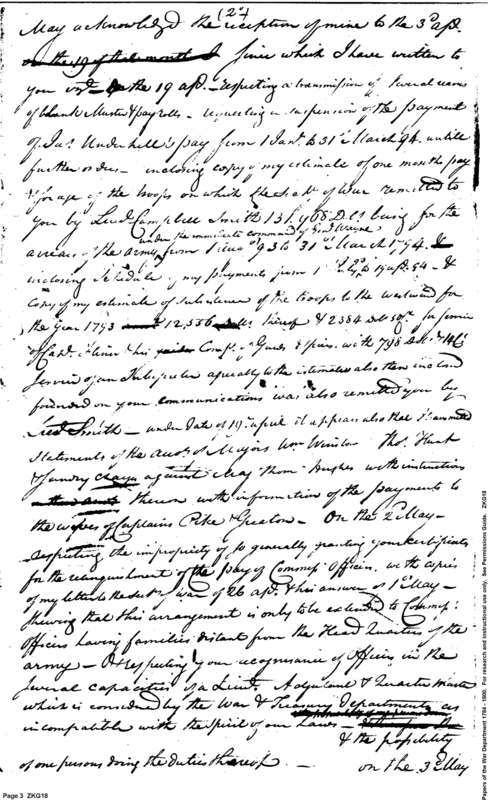 (2d)
May acknowledged the reception of mine to the 3d apl.
on the 19 of that month I since which I have written to
you vizt. the 19 apl. - respecting a transmission of several reams
of blank Muster & payrolls - requesting a suspension of the payment
of Jas. Underhill's pay from 1 Jany. to 31st March 94. untill
further orders - inclosing copy of my estimate of one months pay
& forage of the troops on which the of War remitted to
you by Lieut Campbell Smith Dls being for the
under the immediate command of Genl Wayne
arrears of the army from 1 93 to 31st March 1794. &
inclosing Schedule of my payments from 1st to 19 apl. 94 - &
copy of my estimate of subsistance of the troops to the westward for
the year 1793 12,536 Dolls thereof & 2384 for services
of Capt. & his Compy. of Guides & spies. with 798
service of an Interpreter agreeably to the estimates also then inclosed
founded on your communications was also remitted you by
Lieut Smith - under date of 19. april it appears also that I transmitted
statements of the accots. of Majors Wm Winston Thos. Hunt
& sundry charges against Majr Thoms. Hughes with instructions
thereon with information of the payments to
the wives of Captains Pike & Greaton - On the 2d May -
respecting the impropriety of so generally granting your certificates
for the relinquishment of the pay of Commisd. Officers. with copies
of my letter to the Secty of War of 26 apl. & his answer of 1st May -
shewing that this arrangement is only to be extended to Commisd.
officers having families distant from the Head Quarters of the
army - & respecting your recognisance of Officers in the
several capacities of a Lieut. Adjutant & Quarter Master
which is considered by the War & Treasury Departments as
incompatible with the spirit of our Laws
& the possibility
of one persons doing the duties thereof - on the 3d May
Page 3 ZKG18
Papers of the War Department 1784 - 1800. For research and instructional use only. See Permissions Guide. ZKG18